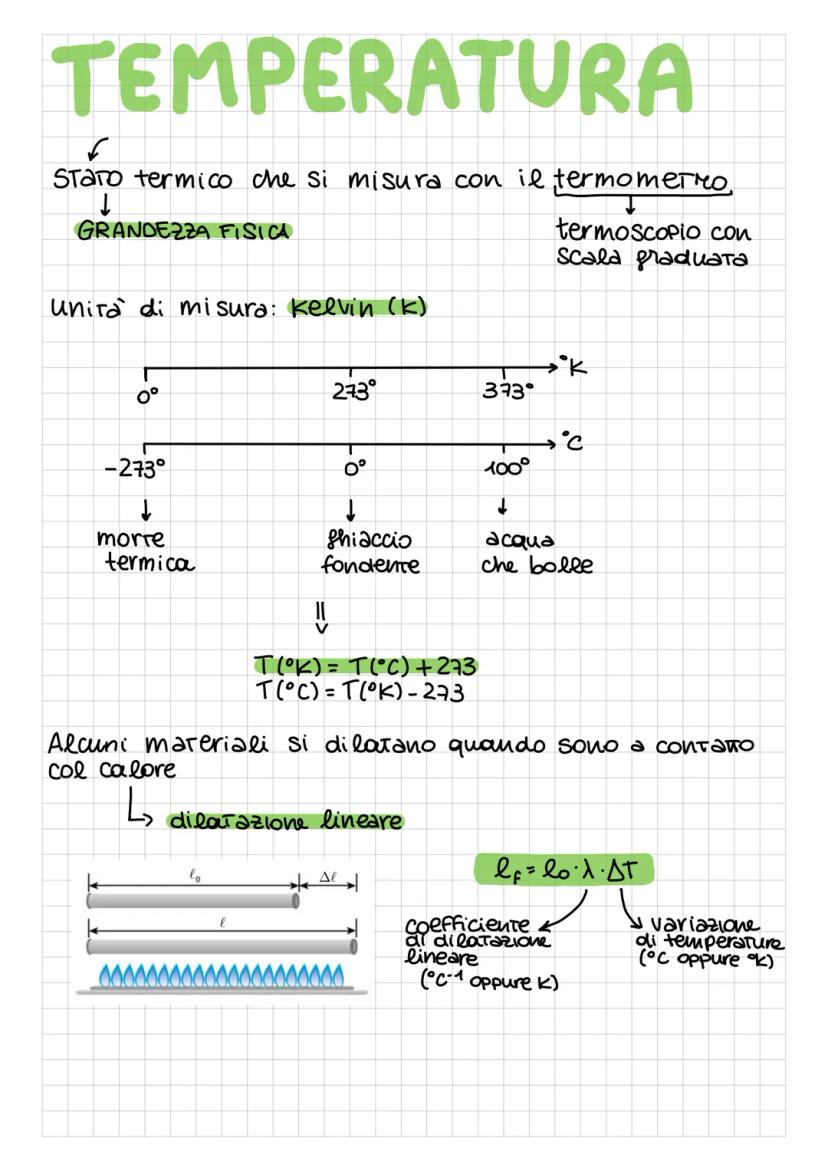 TEMPERATURA
Stato termico che si misura con il termometro
GRANDEZZA FISICA
termoscopio con
scala graduata
Unità di misura: kelvin (K)
°K
0° 273° 373°
°C
-273° 0° 100°
morte
termica
ghiaccio
fondente
acqua
che bolle
T(°K) = T(°C) + 273
T(°C) = T(°K) - 273
Alcuni materiali si dilatano quando sono a contatto
col calore
dilatazione lineare
ℓ₀ Δℓ
ℓ
ℓf = ℓ₀·λ·ΔT
coefficiente
di dilatazione
lineare
(°C⁻¹ oppure K)
variazione
di temperatura
(°C oppure °K)